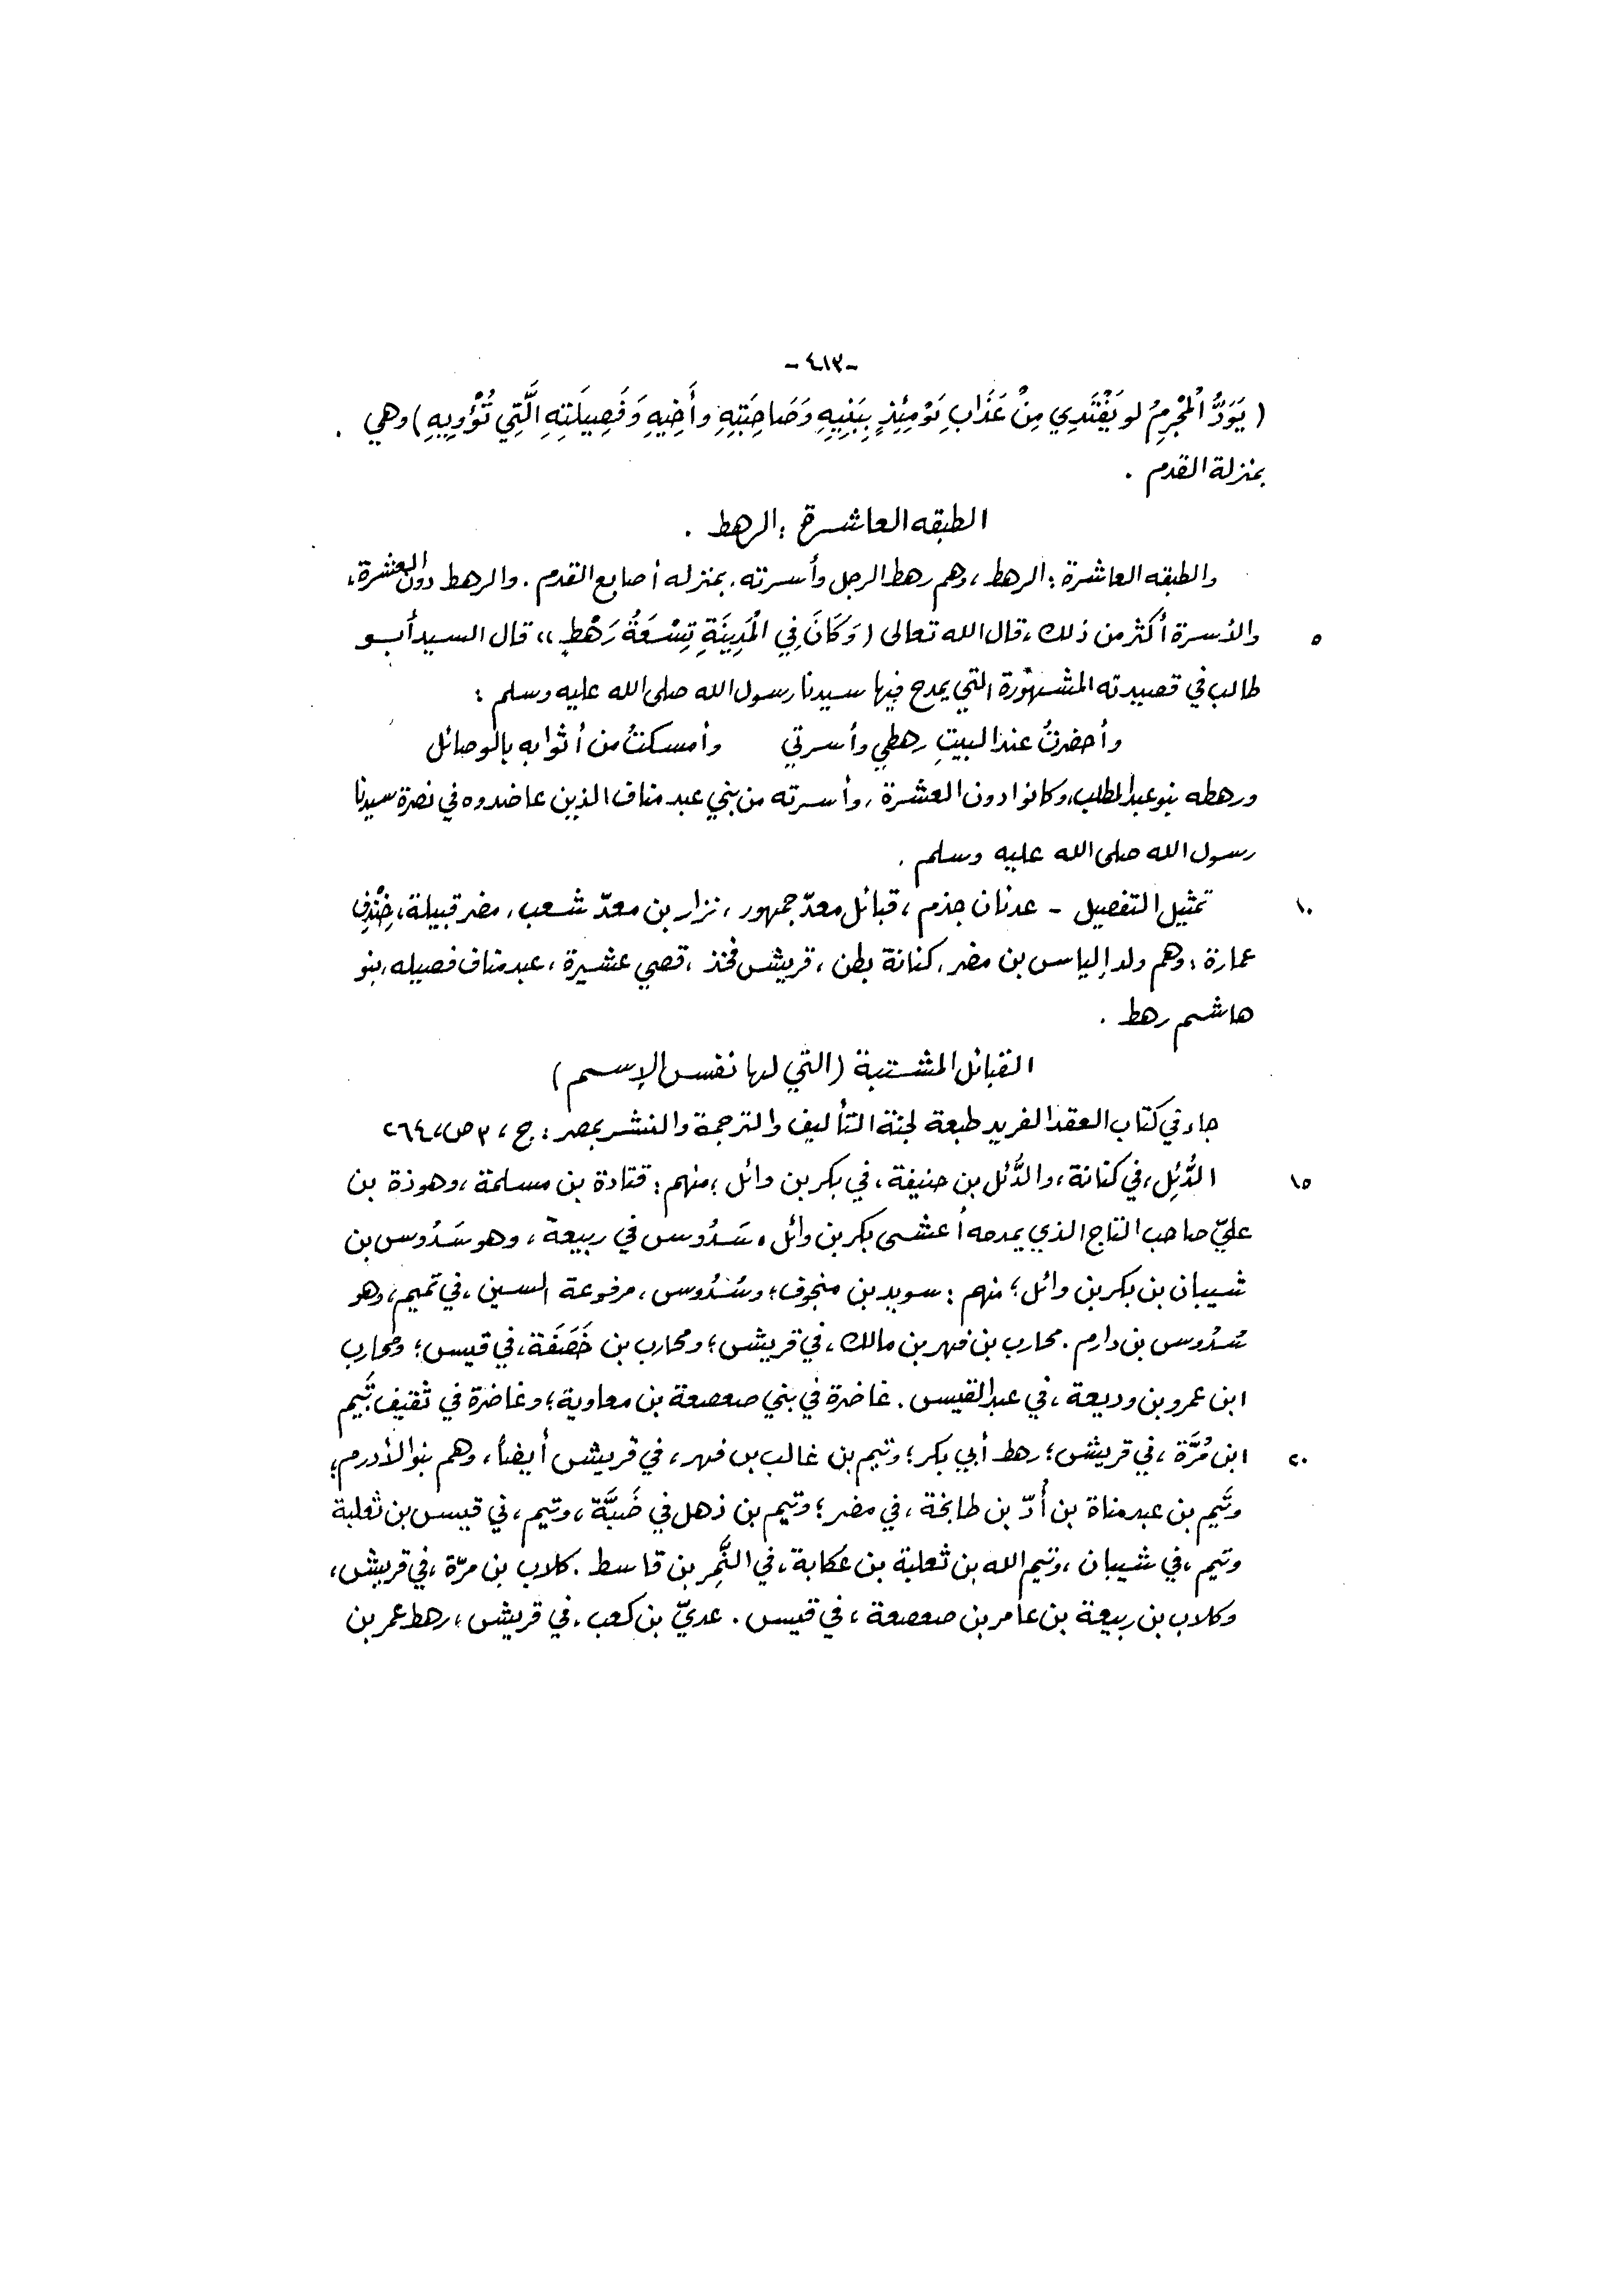 -٤١٣-
( يَوَدُّ الْمُجْرِمُ لو يَفْتَدِي مِنْ عَذَابِ يَوْمِئِذٍ بِبَنِيهِ وَصَاحِبَتِهِ وأَخِيهِ وَفَصِيلَتِهِ الَّتِي تُؤْوِيهِ ) وهي
بمنزلة القدم .
الطبقه العاشرة : الرهط .
والطبقه العاشرة : الرهط ، وهم رهط الرجل وأسرته ، بمنزله أصابع القدم . والرهط دون العشرة ،
٥ والأسرة أكثر من ذلك ، قال الله تعالى ( وَكَانَ فِي الْمَدِينَةِ تِسْعَةُ رَهْطٍ ،، قال السيد أبو
طالب في قصيدته المشهورة التي يمدح فيها سيدنا رسول الله صلى الله عليه وسلم :
وأحضرتُ عند البيتِ رهطي وأسرتي وأمسكتُ من أثوابه بالوصائل
ورهطه بنو عبد المطلب ، وكانوا دون العشرة ، وأسرته من بني عبد مناف الذين عاضدوه في نصرة سيدنا
رسول الله صلى الله عليه وسلم .
١٠ تمثيل التفصيل - عدنان جذم ، قبائل معدّ جمهور ، نزار بن معدّ شعب ، مضر قبيلة ، خِنْدِف
عمارة ، وهم ولد إلياس بن مضر ، كنانة بطن ، قريش فخذ ، قصي عشيرة ، عبد مناف فصيله ، بنو
هاشم رهط .
القبائل المشتبة ( التي لها نفس الإسم )
جاء في كتاب العقد الفريد طبعة لجنة التأليف والترجمة والنشر بمصر : ج ، ٣ ص ، ٢٦٤
١٥ الدُّئِل ، في كنانة ، والدُّئل بن حنيفة ، في بكر بن وائل ؛ منهم : قتادة بن مسلمة ، وهوذة بن
عليّ صاحب التاج الذي يمدحه أعشى بكر بن وائل . سَدُوس في ربيعة ، وهو سَدُوس بن
شيبان بن بكر بن وائل ؛ منهم : سويد بن منجوف ؛ وسُدُوس ، مرفوعة السين ، في تميم ، وهو
سُدُوس بن دارم . محارب بن فهر بن مالك ، في قريش ؛ ومحارب بن خَصَفَة ، في قيس ؛ ومحارب
ابن عمرو بن وديعة ، في عبد القيس . غاضرة في بني صعصعة بن معاوية ؛ وغاضرة في ثقيف . تَيم
٢٠ ابن مُرَّة ، في قريش ؛ رهط أبي بكر ؛ وتيم بن غالب بن فهر ، في قريش أيضاً ، وهم بنو الأدرم ؛
وتَيم بن عبد مناة بن أُدّ بن طابخة ، في مضر ؛ وتيم بن ذهل في ضَبَّة ، وتيم ، في قيس بن ثعلبة
وتيم ، في شيبان ، وتيم الله بن ثعلبة بن عكابة ، في النَّمِر بن قاسط . كلاب بن مرّة ، في قريش ،
وكلاب بن ربيعة بن عامر بن صعصعة ، في قيس . عديّ بن كعب ، في قريش ، رهط عمر بن